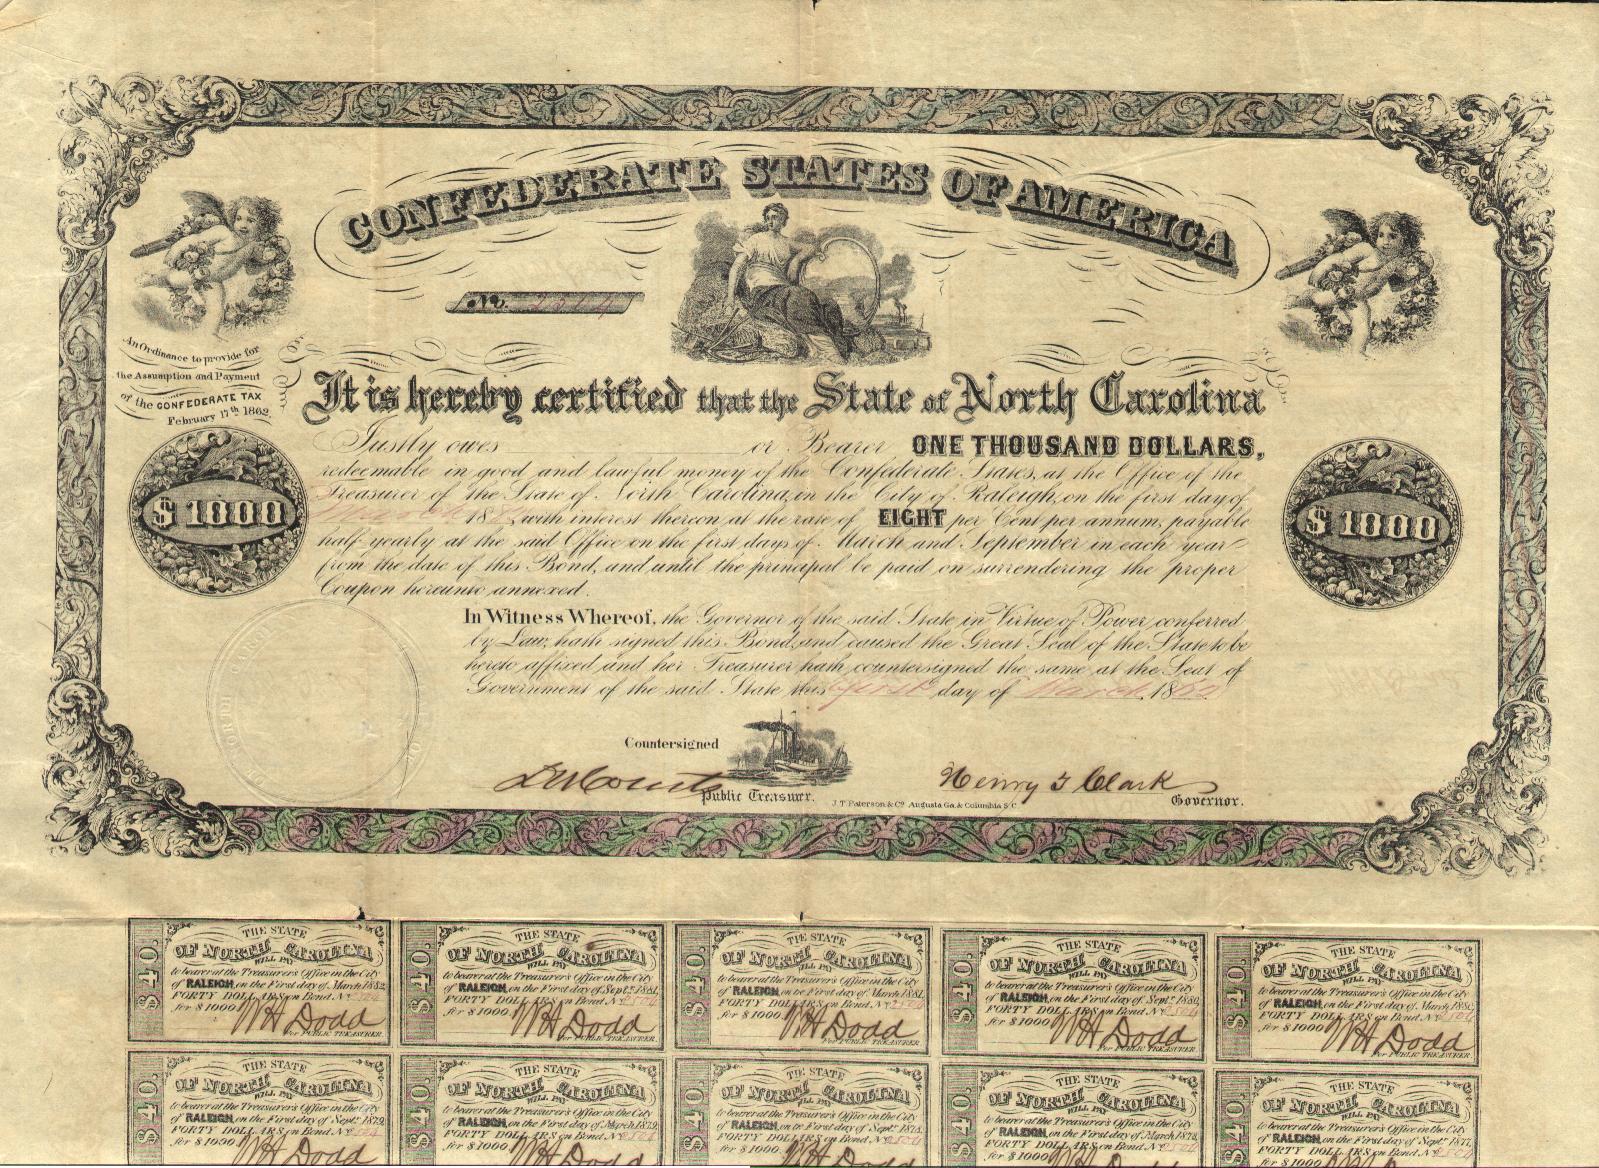 CONFEDERATE STATES OF AMERICA
No.
An Ordinance to provide for
the Assumption and Payment
of the CONFEDERATE TAX
February 17th 1862.
It is hereby certified that the State of North Carolina
Justly owes or Bearer ONE THOUSAND DOLLARS,
redeemable in good and lawful money of the Confederate States, at the Office of the
Treasurer of the State of North Carolina, in the City of Raleigh, on the first day of
March 18 , with interest thereon at the rate of EIGHT per Cent per annum, payable
half yearly at the said Office on the first days of March and September in each year
from the date of this Bond, and until the principal be paid on surrendering the proper
Coupon hereunto annexed.
$ 1000
$ 1000
In Witness Whereof, the Governor of the said State in Virtue of Power conferred
by Law, hath signed this Bond, and caused the Great Seal of the State to be
hereto affixed and her Treasurer hath countersigned the same at the Seat of
Government of the said State this first day of March 1862
Countersigned
Public Treasurer.
J.T. Paterson & Co. Augusta Ga. & Columbia S.C.
Henry T Clark
Governor.
$40.
THE STATE
OF NORTH CAROLINA
WILL PAY
to bearer at the Treasurer's Office in the City
of RALEIGH, on the First day of March 1882,
FORTY DOLLARS on Bond No
for $1000
W H Dodd
For PUBLIC TREASURER.
$40.
THE STATE
OF NORTH CAROLINA
WILL PAY
to bearer at the Treasurer's Office in the City
of RALEIGH, on the First day of Septr. 1881,
FORTY DOLLARS on Bond No
for $1000.
W H Dodd
For PUBLIC TREASURER.
$40.
THE STATE
OF NORTH CAROLINA
WILL PAY
to bearer at the Treasurer's Office in the City
of RALEIGH, on the First day of March 1881,
FORTY DOLLARS on Bond No
for $1000.
W H Dodd
For PUBLIC TREASURER.
$40.
THE STATE
OF NORTH CAROLINA
WILL PAY
to bearer at the Treasurer's Office in the City
of RALEIGH, on the First day of Septr. 1880,
FORTY DOLLARS on Bond No
for $1000
W H Dodd
For PUBLIC TREASURER.
$40.
THE STATE
OF NORTH CAROLINA
WILL PAY
to bearer at the Treasurer's Office in the City
of RALEIGH, on the First day of March 1880,
FORTY DOLLARS on Bond No
for $1000
W H Dodd
For PUBLIC TREASURER.
$40.
THE STATE
OF NORTH CAROLINA
WILL PAY
to bearer at the Treasurer's Office in the City
of RALEIGH, on the First day of Septr. 1879,
FORTY DOLLARS on Bond No
for $1000.
W H Dodd
$40.
THE STATE
OF NORTH CAROLINA
WILL PAY
to bearer at the Treasurer's Office in the City
of RALEIGH, on the First day of March 1879,
FORTY DOLLARS on Bond No
for $1000
W H Dodd
$40.
THE STATE
OF NORTH CAROLINA
WILL PAY
to bearer at the Treasurer's Office in the City
of RALEIGH, on the First day of Septr. 1878,
FORTY DOLLARS on Bond No
for $1000.
W H Dodd
$40.
THE STATE
OF NORTH CAROLINA
WILL PAY
to bearer at the Treasurer's Office in the City
of RALEIGH, on the First day of March 1878,
FORTY DOLLARS on Bond No
for $1000
W H Dodd
$40.
THE STATE
OF NORTH CAROLINA
WILL PAY
to bearer at the Treasurer's Office in the City
of RALEIGH, on the First day of Septr. 1877,
FORTY DOLLARS on Bond No
for $1000